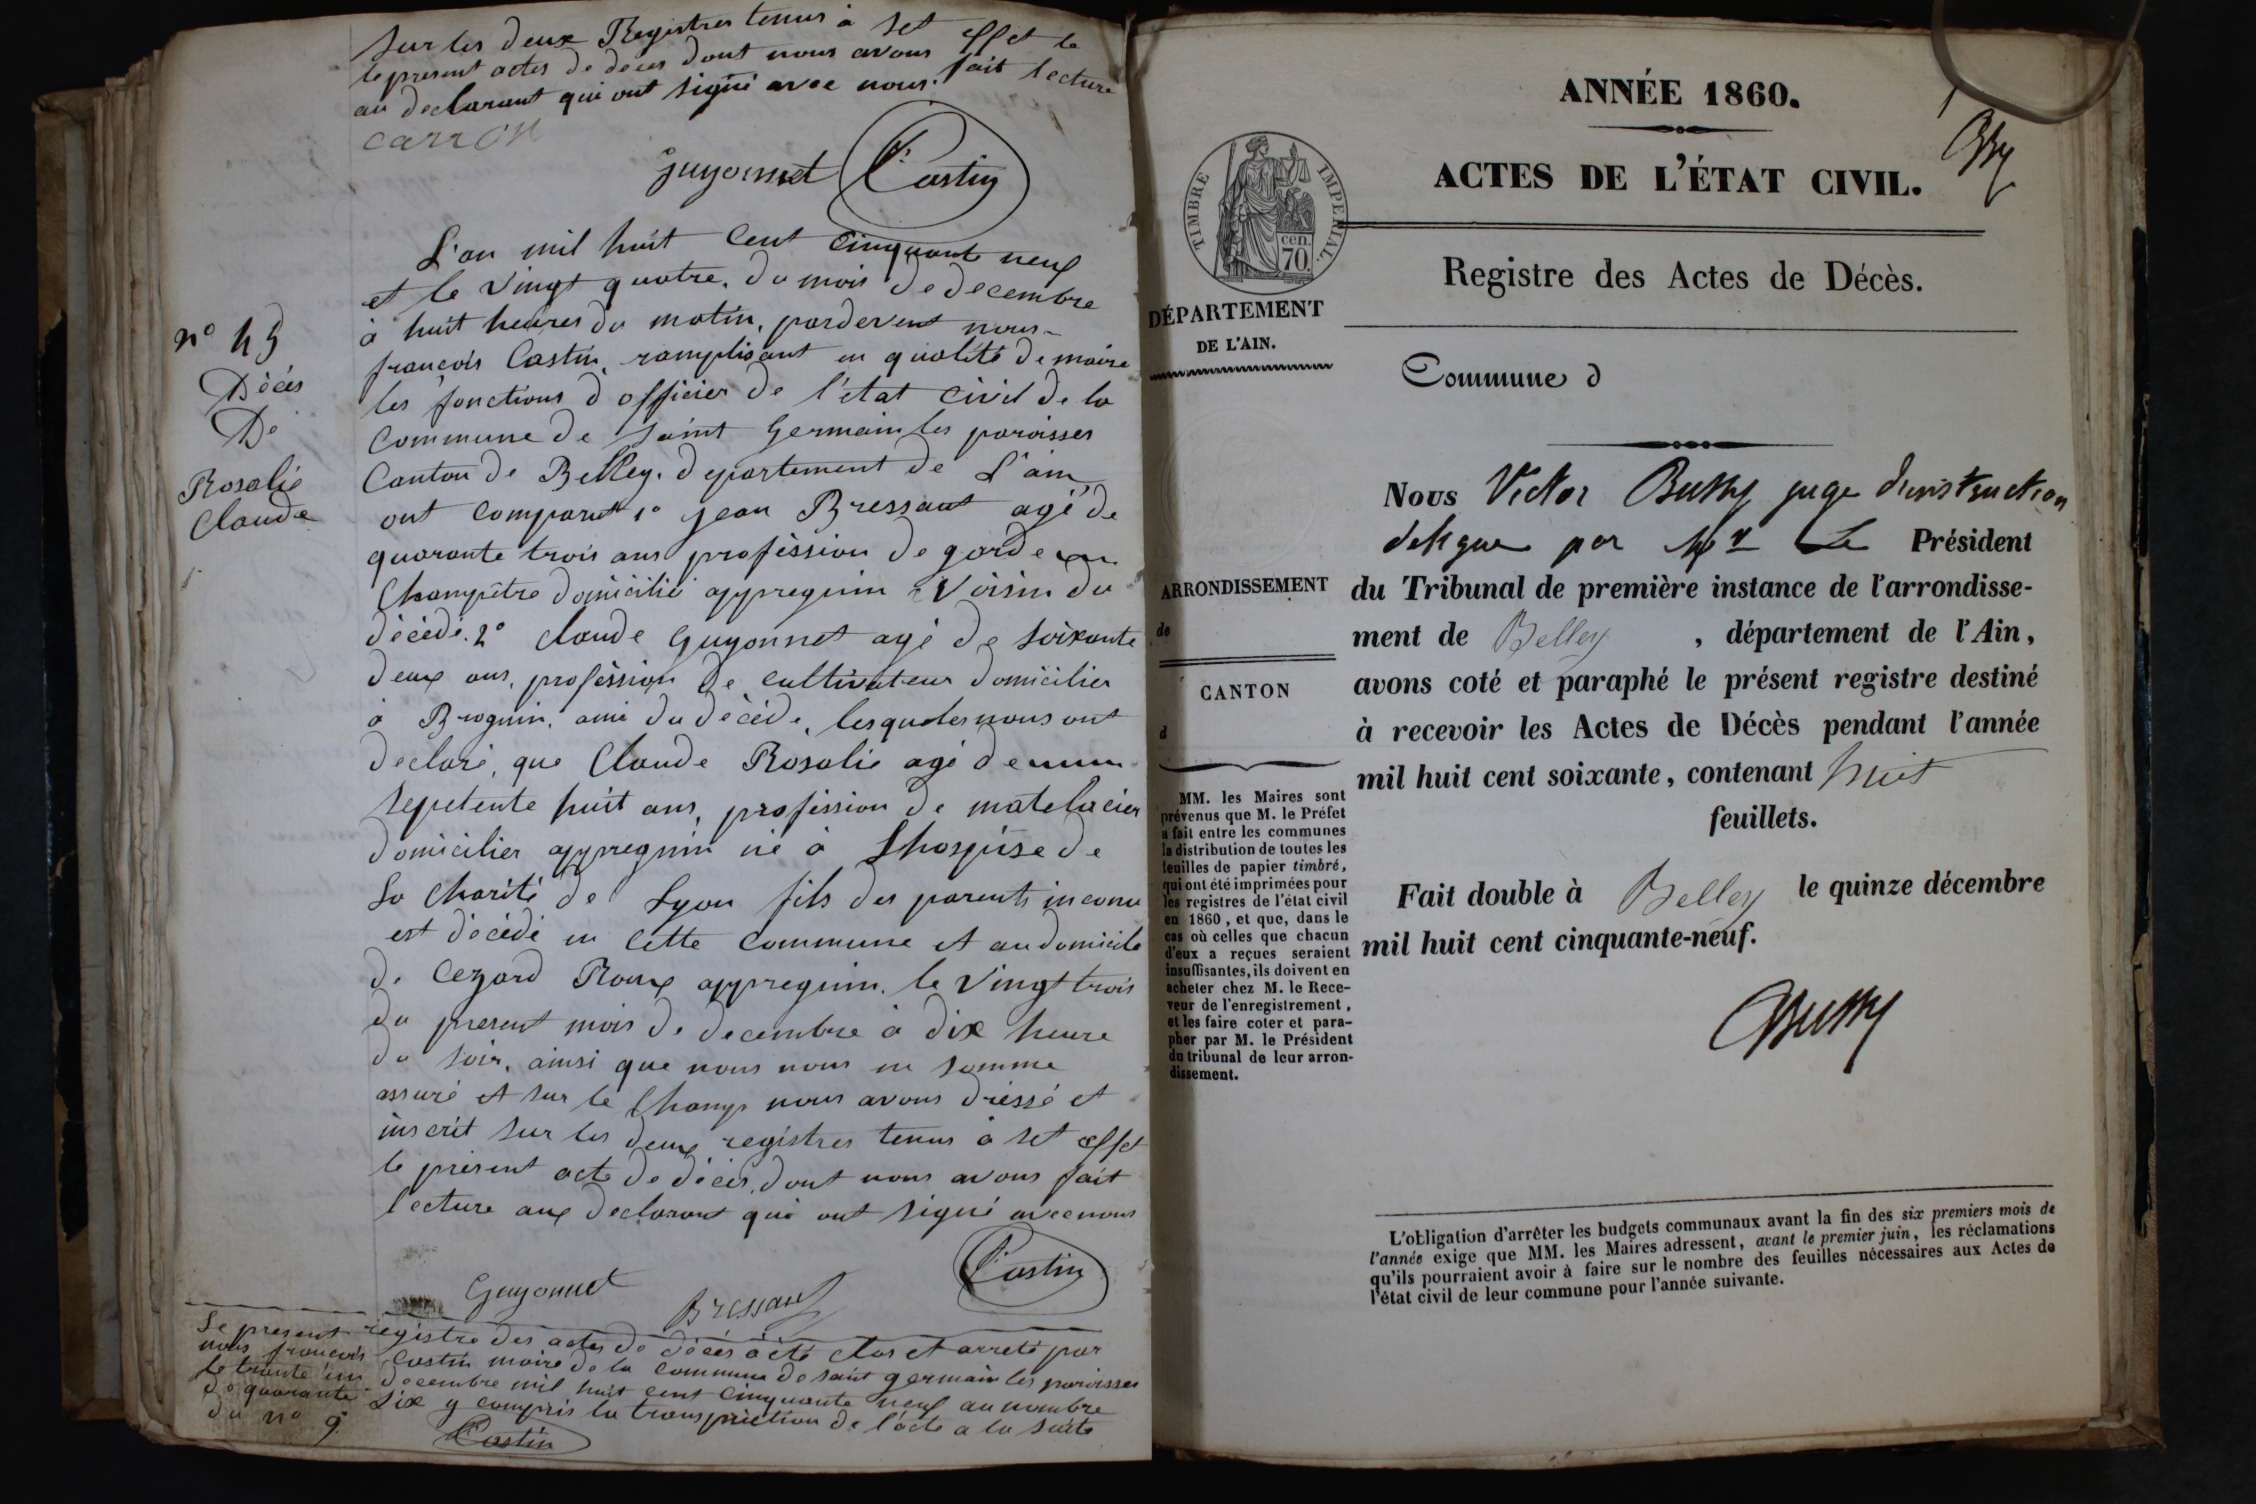 sur les deux Registres tenus à set effet le
le present actes de deces dont nous avons fait lecture
au declarant qui ont signé avec nous.
carron
Guyonnet Castin
L'an mil huit Cent Cinquante neuf
et le vingt quatre, du mois de decembre
à huit heures du matin, pardevent nous
françois Castin, ramplisant en qualité de maire
les fonctions d officier de l'état civil de la
Commune de saint Germain les paroisses
Canton de Belley. departement de L'ain
ont comparut 1° jean Bressaut agé de
quarante trois ans profèssion de garde
Champêtre domicilié appregnin Voisin du
décédé. 2° claude Guyonnet agé de soixante
deux ans, profession de cultivateur domicilier
à Brognin, ami du décédé, lesqueles nous ont
declaré, que Claude Rosalie agé de
sepetente huit ans, profession de matelacier
domicilier appregnin né à Lhospise de
La Charité de Lyon fils des parents inconu
est décédé en cette commune et au domicile
de Cezard Roux appregnin. le Vingt trois
du present mois de decembre à dix heure
du soir, ainsi que nous nous en somme
assuré et sur le Champ nous avons dressé et
inscrit sur les deux registres tenus à set effet
le présent acte de décès, dont nous avons fait
lecture aux declarant qui ont signé avec nous
Guyonnet Bressaut Castin
n° 45
Décès
De
Rosalie
Claude
Le present registre des actes de décés à été clos et arreté par
nous françois Castin maire de la commune de saint germain les paroisses
le trante un decembre mil huit cent cinquante neuf au nombre
de quarante six y compris la transpriction de l'acte a la suite
du n° 9
Castin
ANNÉE 1860.
ACTES DE L'ÉTAT CIVIL.
TIMBRE IMPERIAL.
cen.
70.
Registre des Actes de Décès.
DÉPARTEMENT
DE L'AIN.
Commune d
Nous Victor Bussy juge dinstruction
delegue par Mr Le Président
du Tribunal de première instance de l'arrondisse-
ment de Belley , département de l'Ain,
avons coté et paraphé le présent registre destiné
à recevoir les Actes de Décès pendant l'année
mil huit cent soixante, contenant huit
feuillets.
Fait double à Belley le quinze décembre
mil huit cent cinquante-neuf.
Bussy
ARRONDISSEMENT
de
CANTON
d
MM. les Maires sont
prévenus que M. le Préfet
a fait entre les communes
la distribution de toutes les
feuilles de papier timbré,
qui ont été imprimées pour
les registres de l'état civil
en 1860, et que, dans le
cas où celles que chacun
d'eux a reçues seraient
insuffisantes, ils doivent en
acheter chez M. le Rece-
veur de l'enregistrement,
et les faire coter et para-
pher par M. le Président
du tribunal de leur arron-
dissement.
L'obligation d'arrêter les budgets communaux avant la fin des six premiers mois de
l'année exige que MM. les Maires adressent, avant le premier juin, les réclamations
qu'ils pourraient avoir à faire sur le nombre des feuilles nécessaires aux Actes de
l'état civil de leur commune pour l'année suivante.